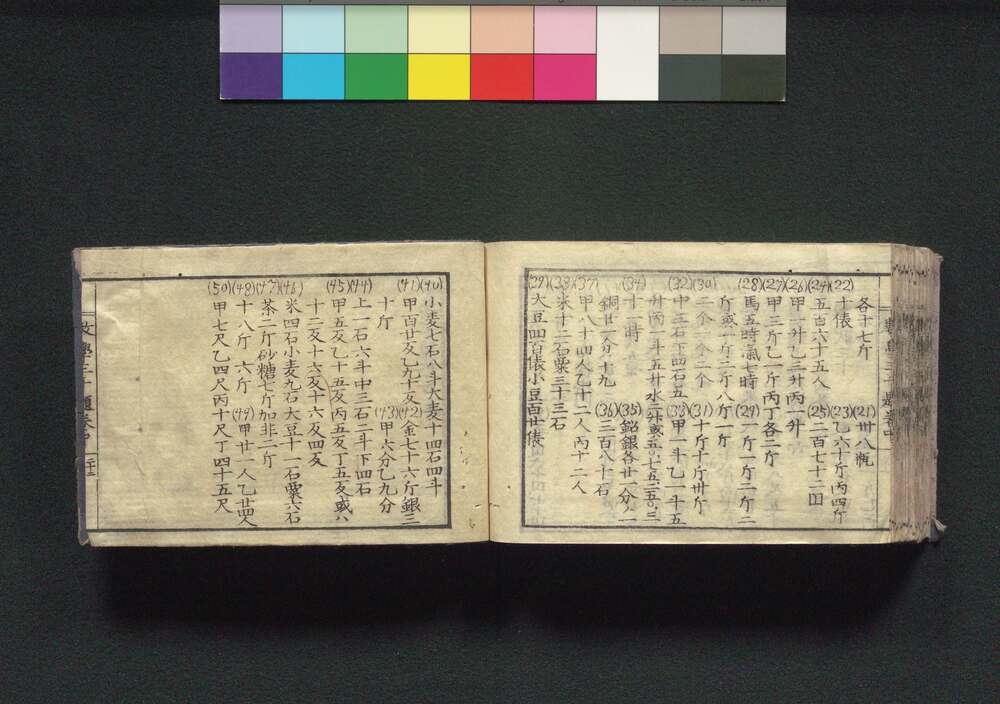 各十七斤 (21)卅八瓶
(22)十俵 (23)乙六十斤丙四斤
(24)五百六十五人 (25)二百七十二回
(26)甲一升乙三升丙一升
(27)甲三斤乙一斤丙丁各二斤
(28)馬五時氣七時 (29)一斤一斤二斤二
斤或一斤二斤八斤一斤
(30)二个一个二个 (31)十斤十斤卅斤
(32)中三石下四石五 (33)甲一斗乙一斗五
升丙一斗五升水
(34)十一時 (35)鉛銀各廿一分一
銅廿一分十九 (36)三百八十石
(37)甲八十四人乙十二人丙十二人
(38)米十二石粟三十三石
(39)大豆四百俵小豆百廿俵
(40)小麦七石八斗大麦十四石四斗
(41)甲百廿反乙九十反 (42)金七十六斤銀三
十斤 (43)甲六分乙九分
(44)上一石六斗中三石二斗下四石
(45)甲五反乙十五反丙五反丁五反或八
十二反十六反十六反四反
(46)米四石小麦九石大豆十一石粟六石
(47)茶二斤砂糖七斤加非二斤
(48)十八斤 六斤 (49)甲廿一人乙廿四人
(50)甲七尺乙四尺丙十尺丁四十五尺